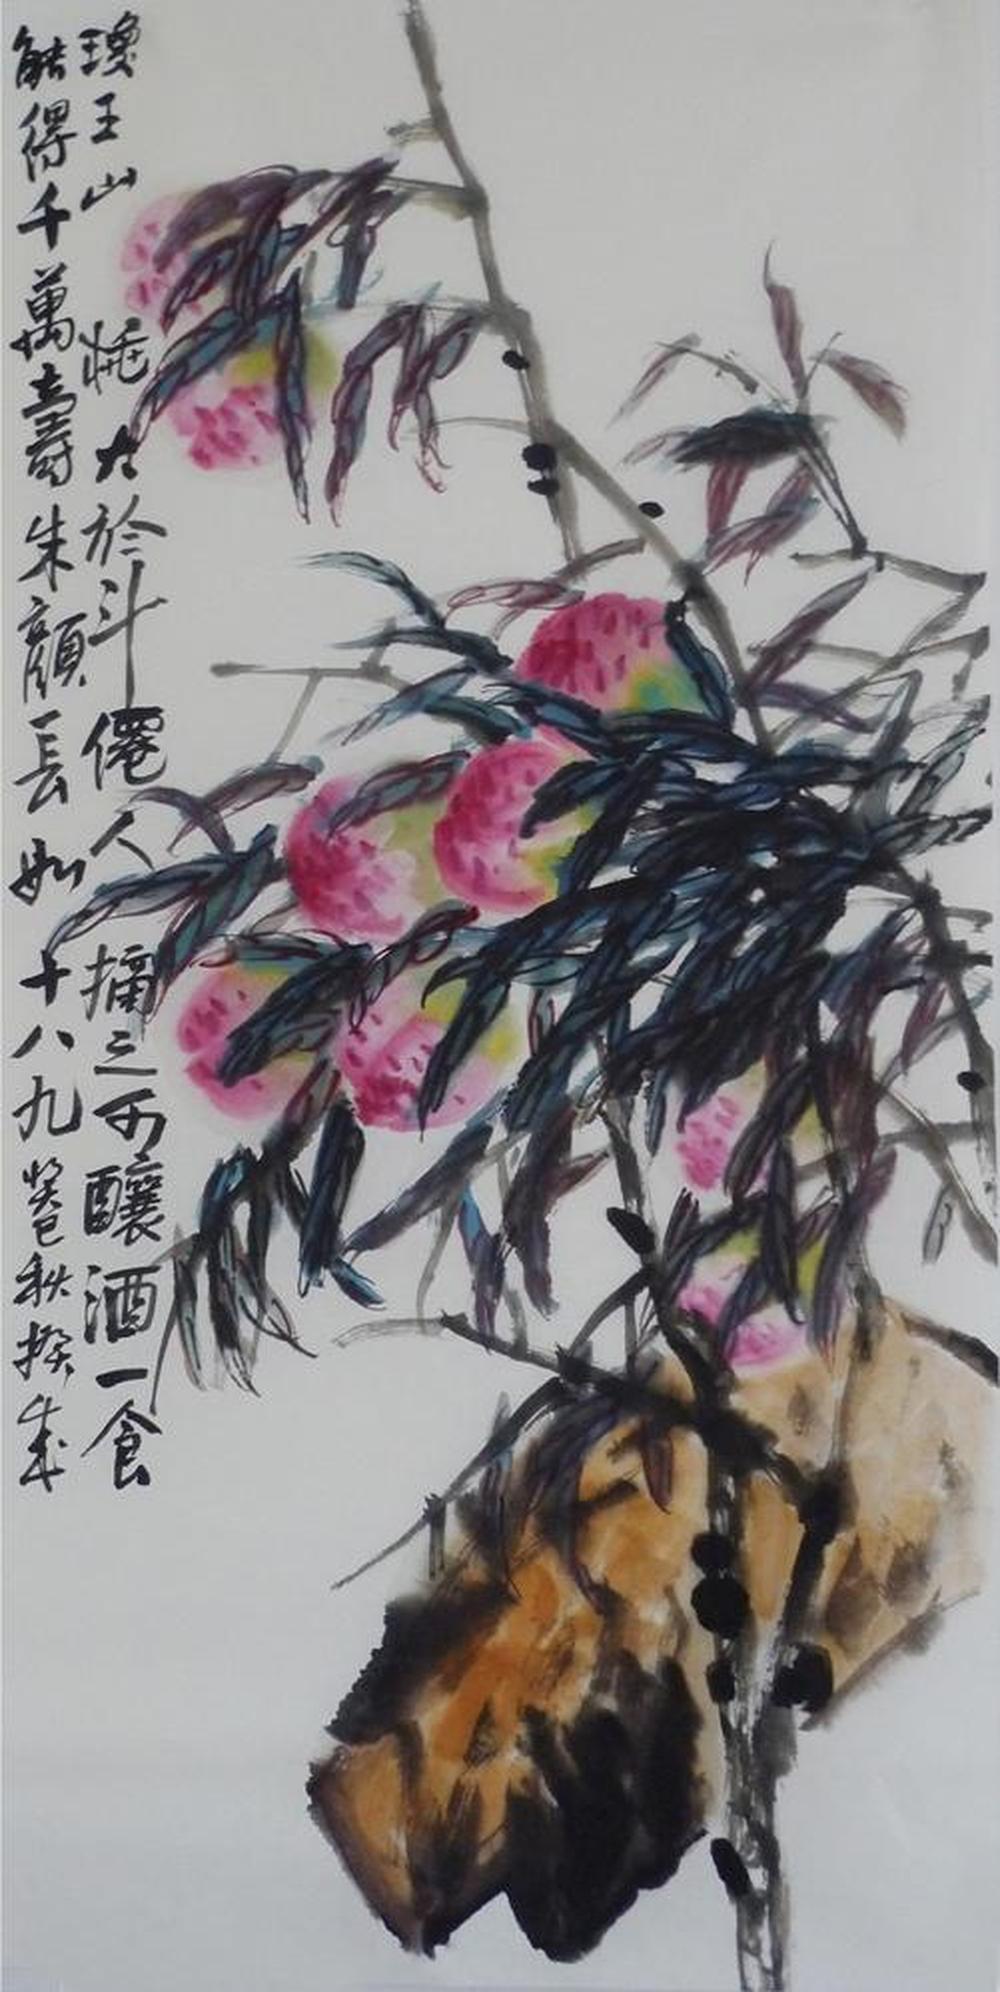 瓊玉山桃大於斗僊人摘之可釀酒一食
能得千萬壽朱顏長如十八九癸巳秋揆生